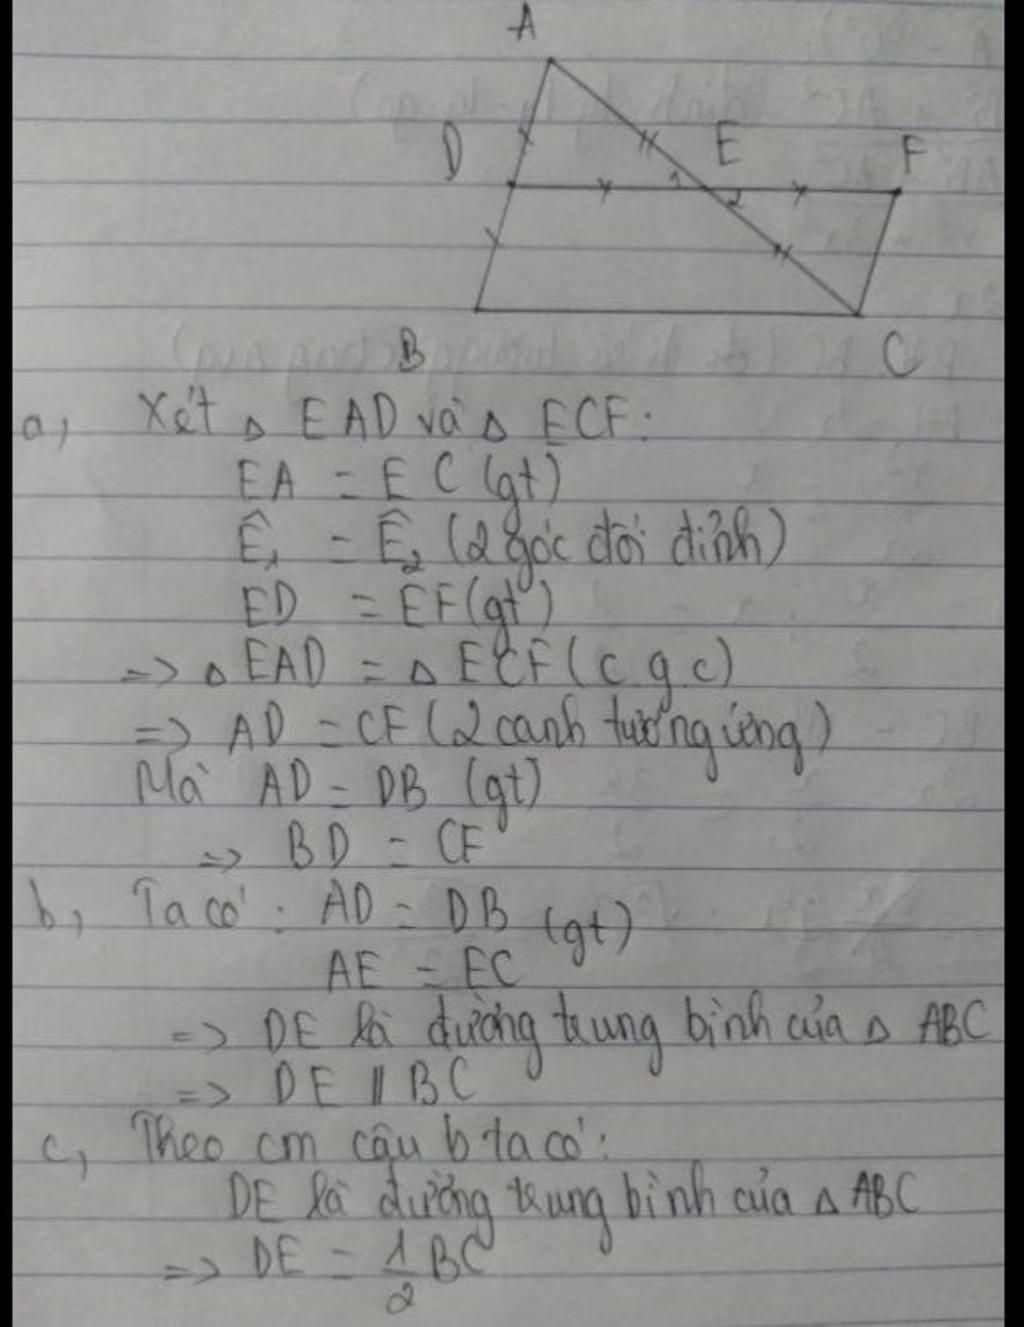 A
D
E
F
1
2
B
C
a, Xét △ EAD và △ ECF:
EA = EC (gt)
Ê₁ = Ê₂ (2 góc đối đỉnh)
ED = EF (gt)
=> △ EAD = △ ECF (c g.c)
=> AD = CF (2 canh tương ứng)
Mà AD = DB (gt)
=> BD = CF
b, Ta có: AD = DB (gt)
AE = EC
=> DE là đường trung bình của △ ABC
=> DE // BC
c, Theo cm câu b ta có:
DE là đường trung bình của △ ABC
=> DE = 1/2 BC